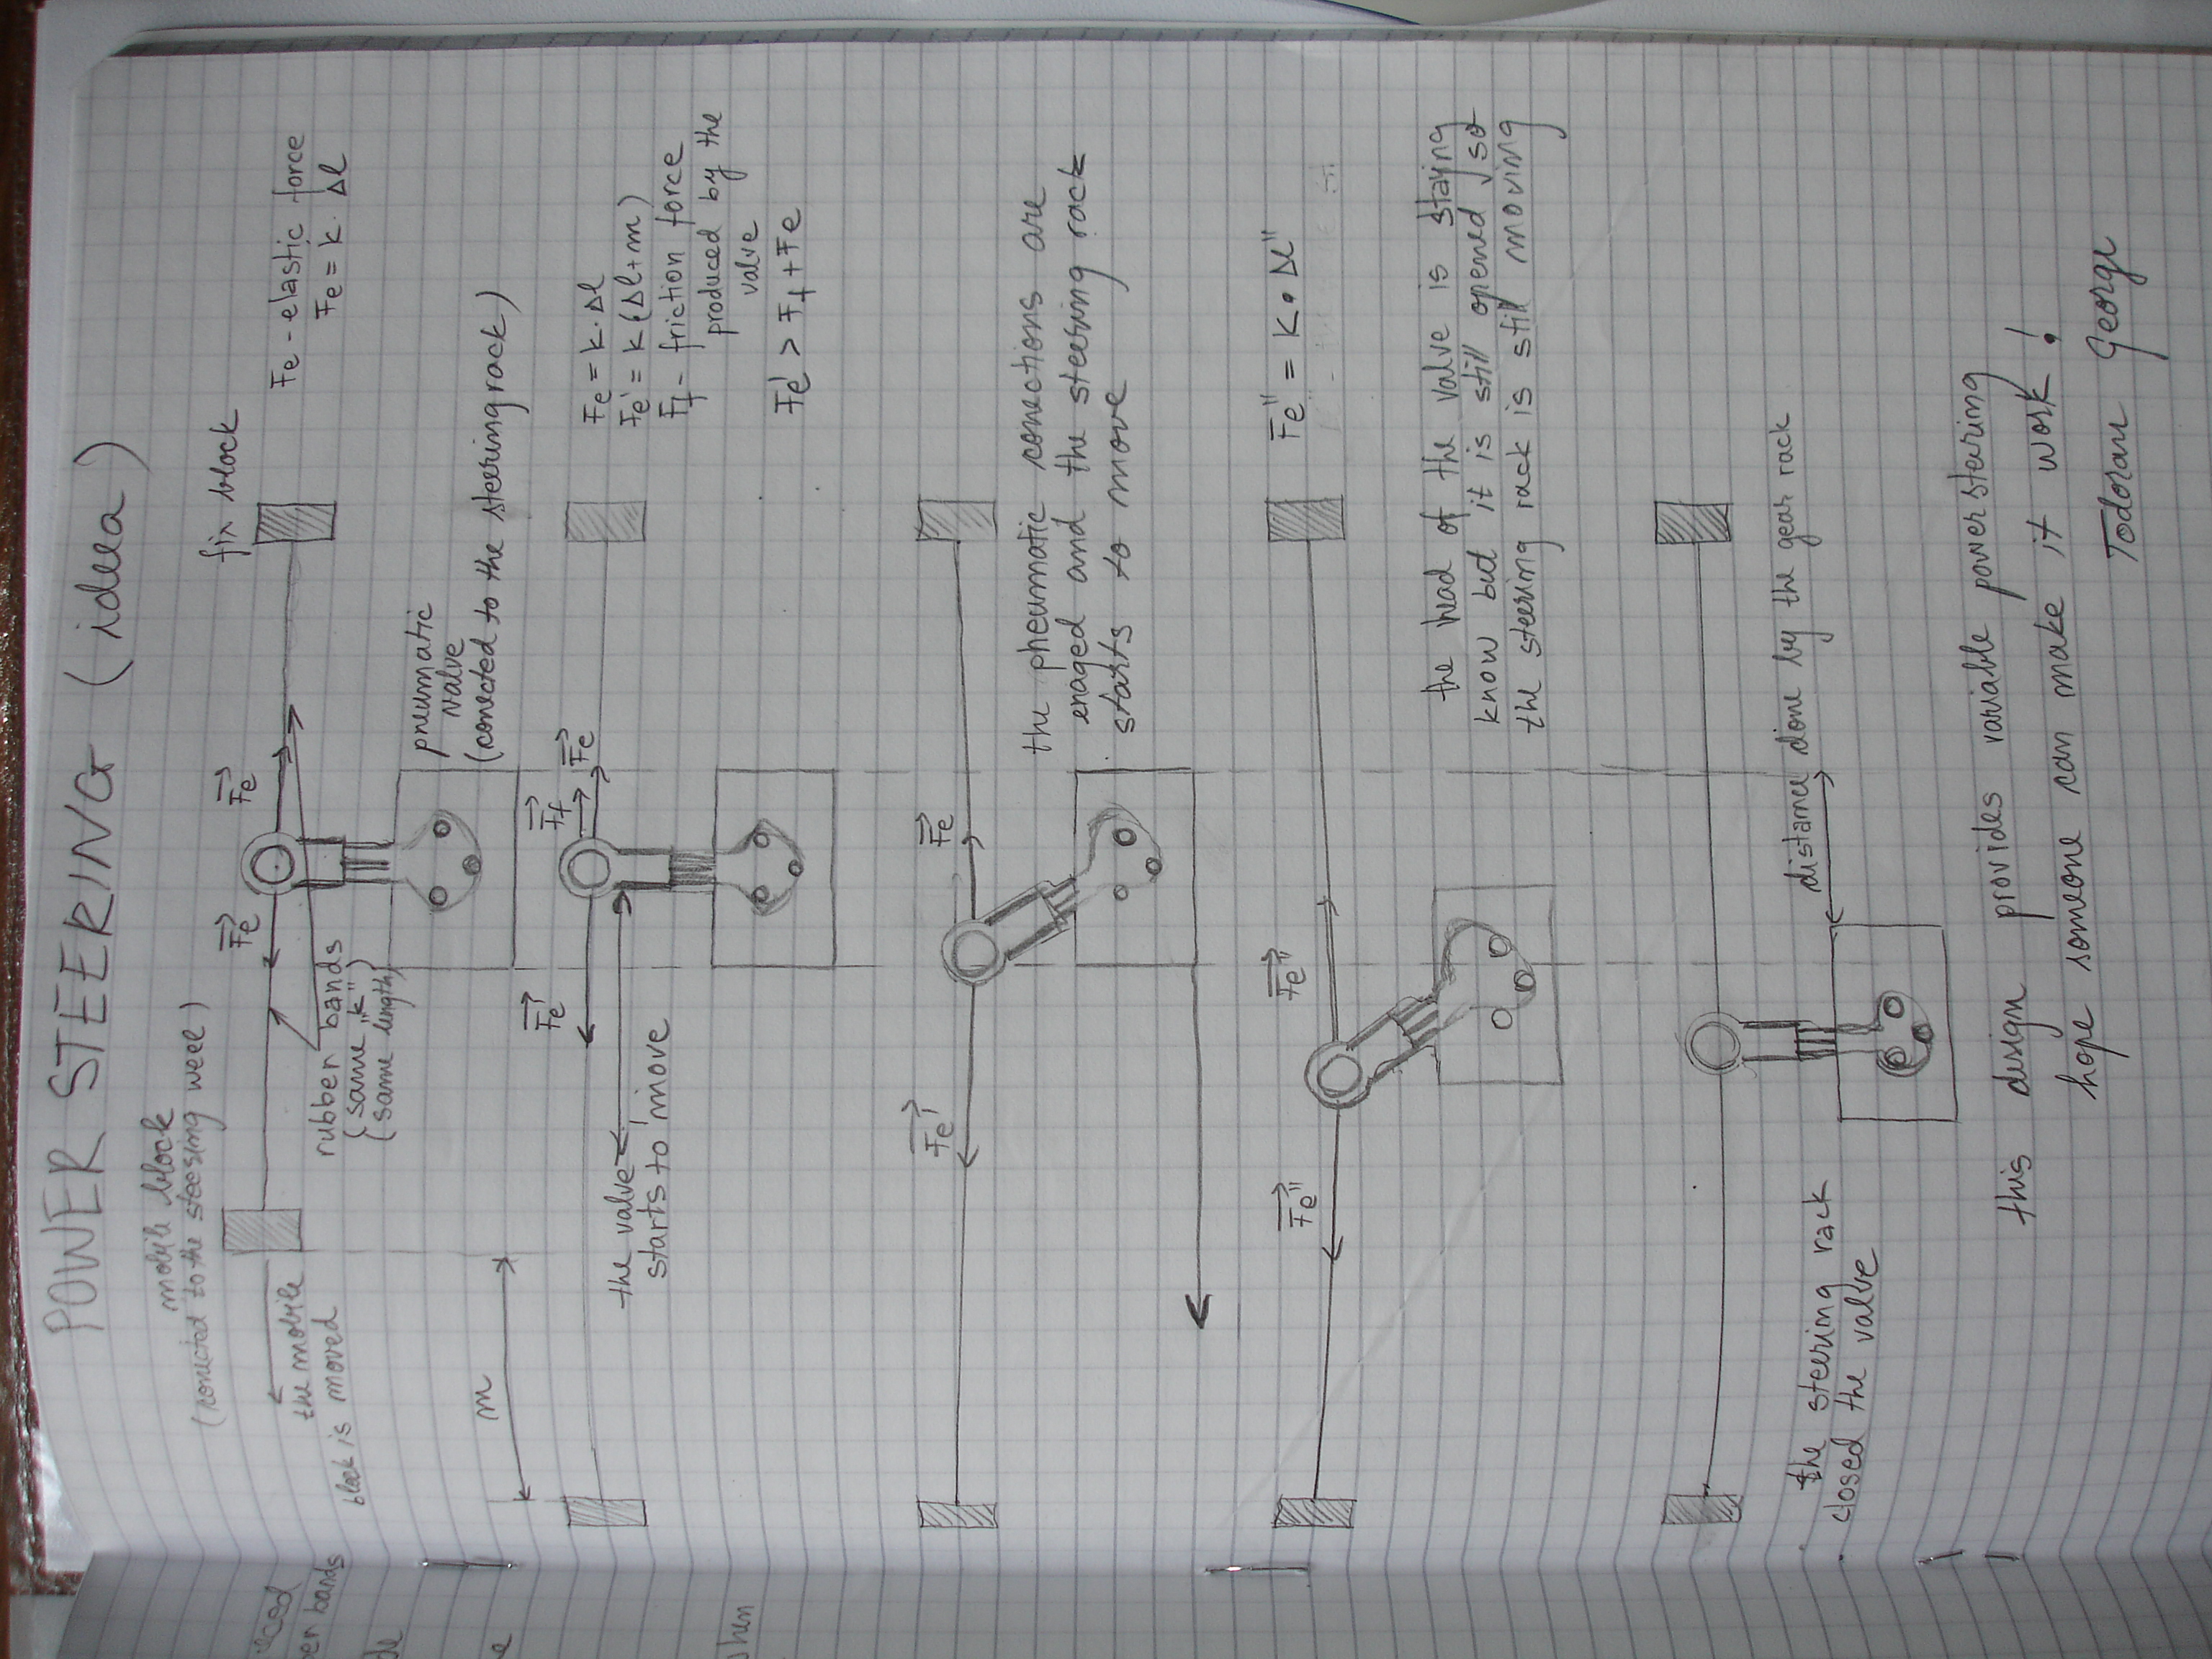 POWER STEERING (idea)
mobile block
(conected to the steesing weel)
fix block
the mobile
block is moved
rubber bands
{ same "k"
{ same length
Fe
Fe
Fe - elastic force
Fe = k · Δl
pneumatic
valve
(conected to the steeringrack)
m
Fe'
Ff
Fe
the valve
starts to move
Fe = k · Δl
Fe' = k (Δl+m)
Ff - friction force
produced by the
valve
Fe' > Ff + Fe
Fe'
Fe
the pneumatic conections are
enaged and the steering rack
starts to move
Fe"
Fe"
Fe" = k · Δl"
the head of the valve is staying
know but it is still opened so
the steering rack is still moving
the steering rack
closed the valve
distance done by the gear rack
this design provides variable power steering
hope someone can make it work!
Todoran George
er bands
de
e
hen